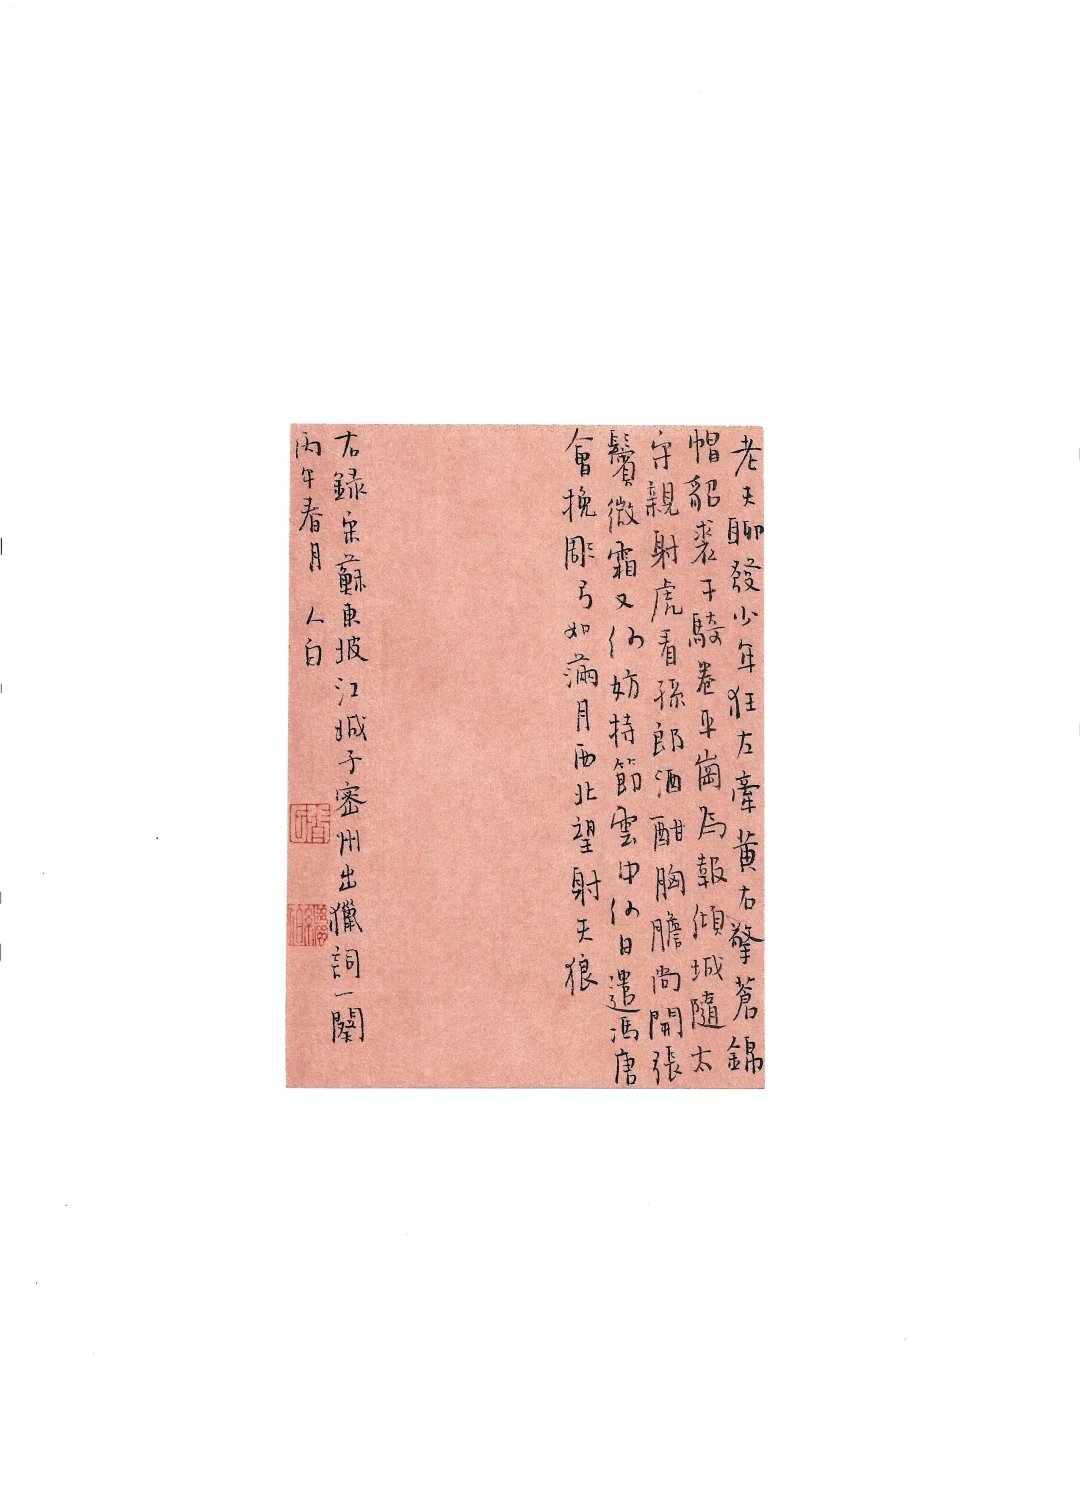 老夫聊發少年狂左牽黃右擎蒼錦
帽貂裘千騎卷平崗為報傾城隨太
守親射虎看孫郎酒酣胸膽尚開張
鬢微霜又何妨持節雲中何日遣馮唐
會挽彫弓如滿月西北望射天狼
右録宋蘇東坡江城子密州出獵詞一闋
丙午春月 人白